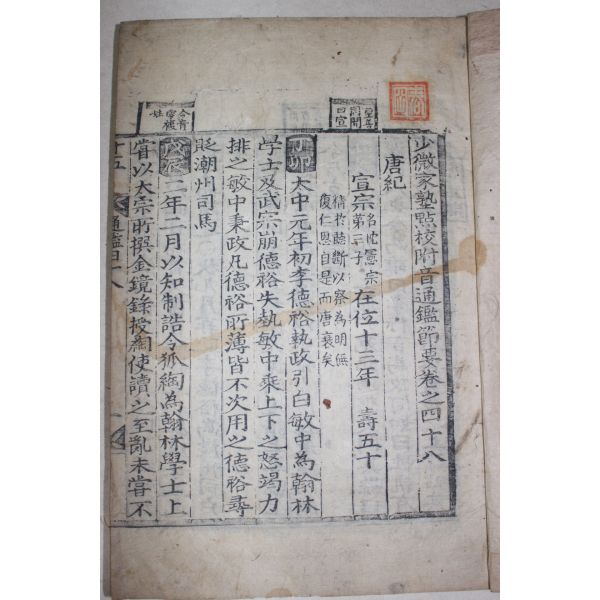 少微家塾點校附音通鑑節要卷之四十八
唐紀
宣宗
名忱憲宗
第三子
在位十三年 壽五十
精於聽斷以察為明無
復仁恩自是而唐衰矣
丁卯太中元年初李德裕執政引白敏中為翰林
學士及武宗崩德裕失執敏中乘上下之怒竭力
排之敏中秉政凡德裕所薄皆不次用之德裕尋
貶潮州司馬
戊辰二年二月以知制誥令狐綯為翰林學士上
嘗以太宗所撰金鏡錄授綯使讀之至亂未嘗不
通鑑四十八